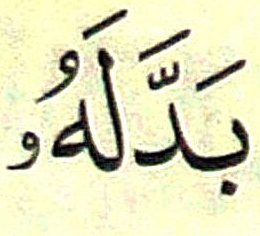 بَدَّلَهُۥ